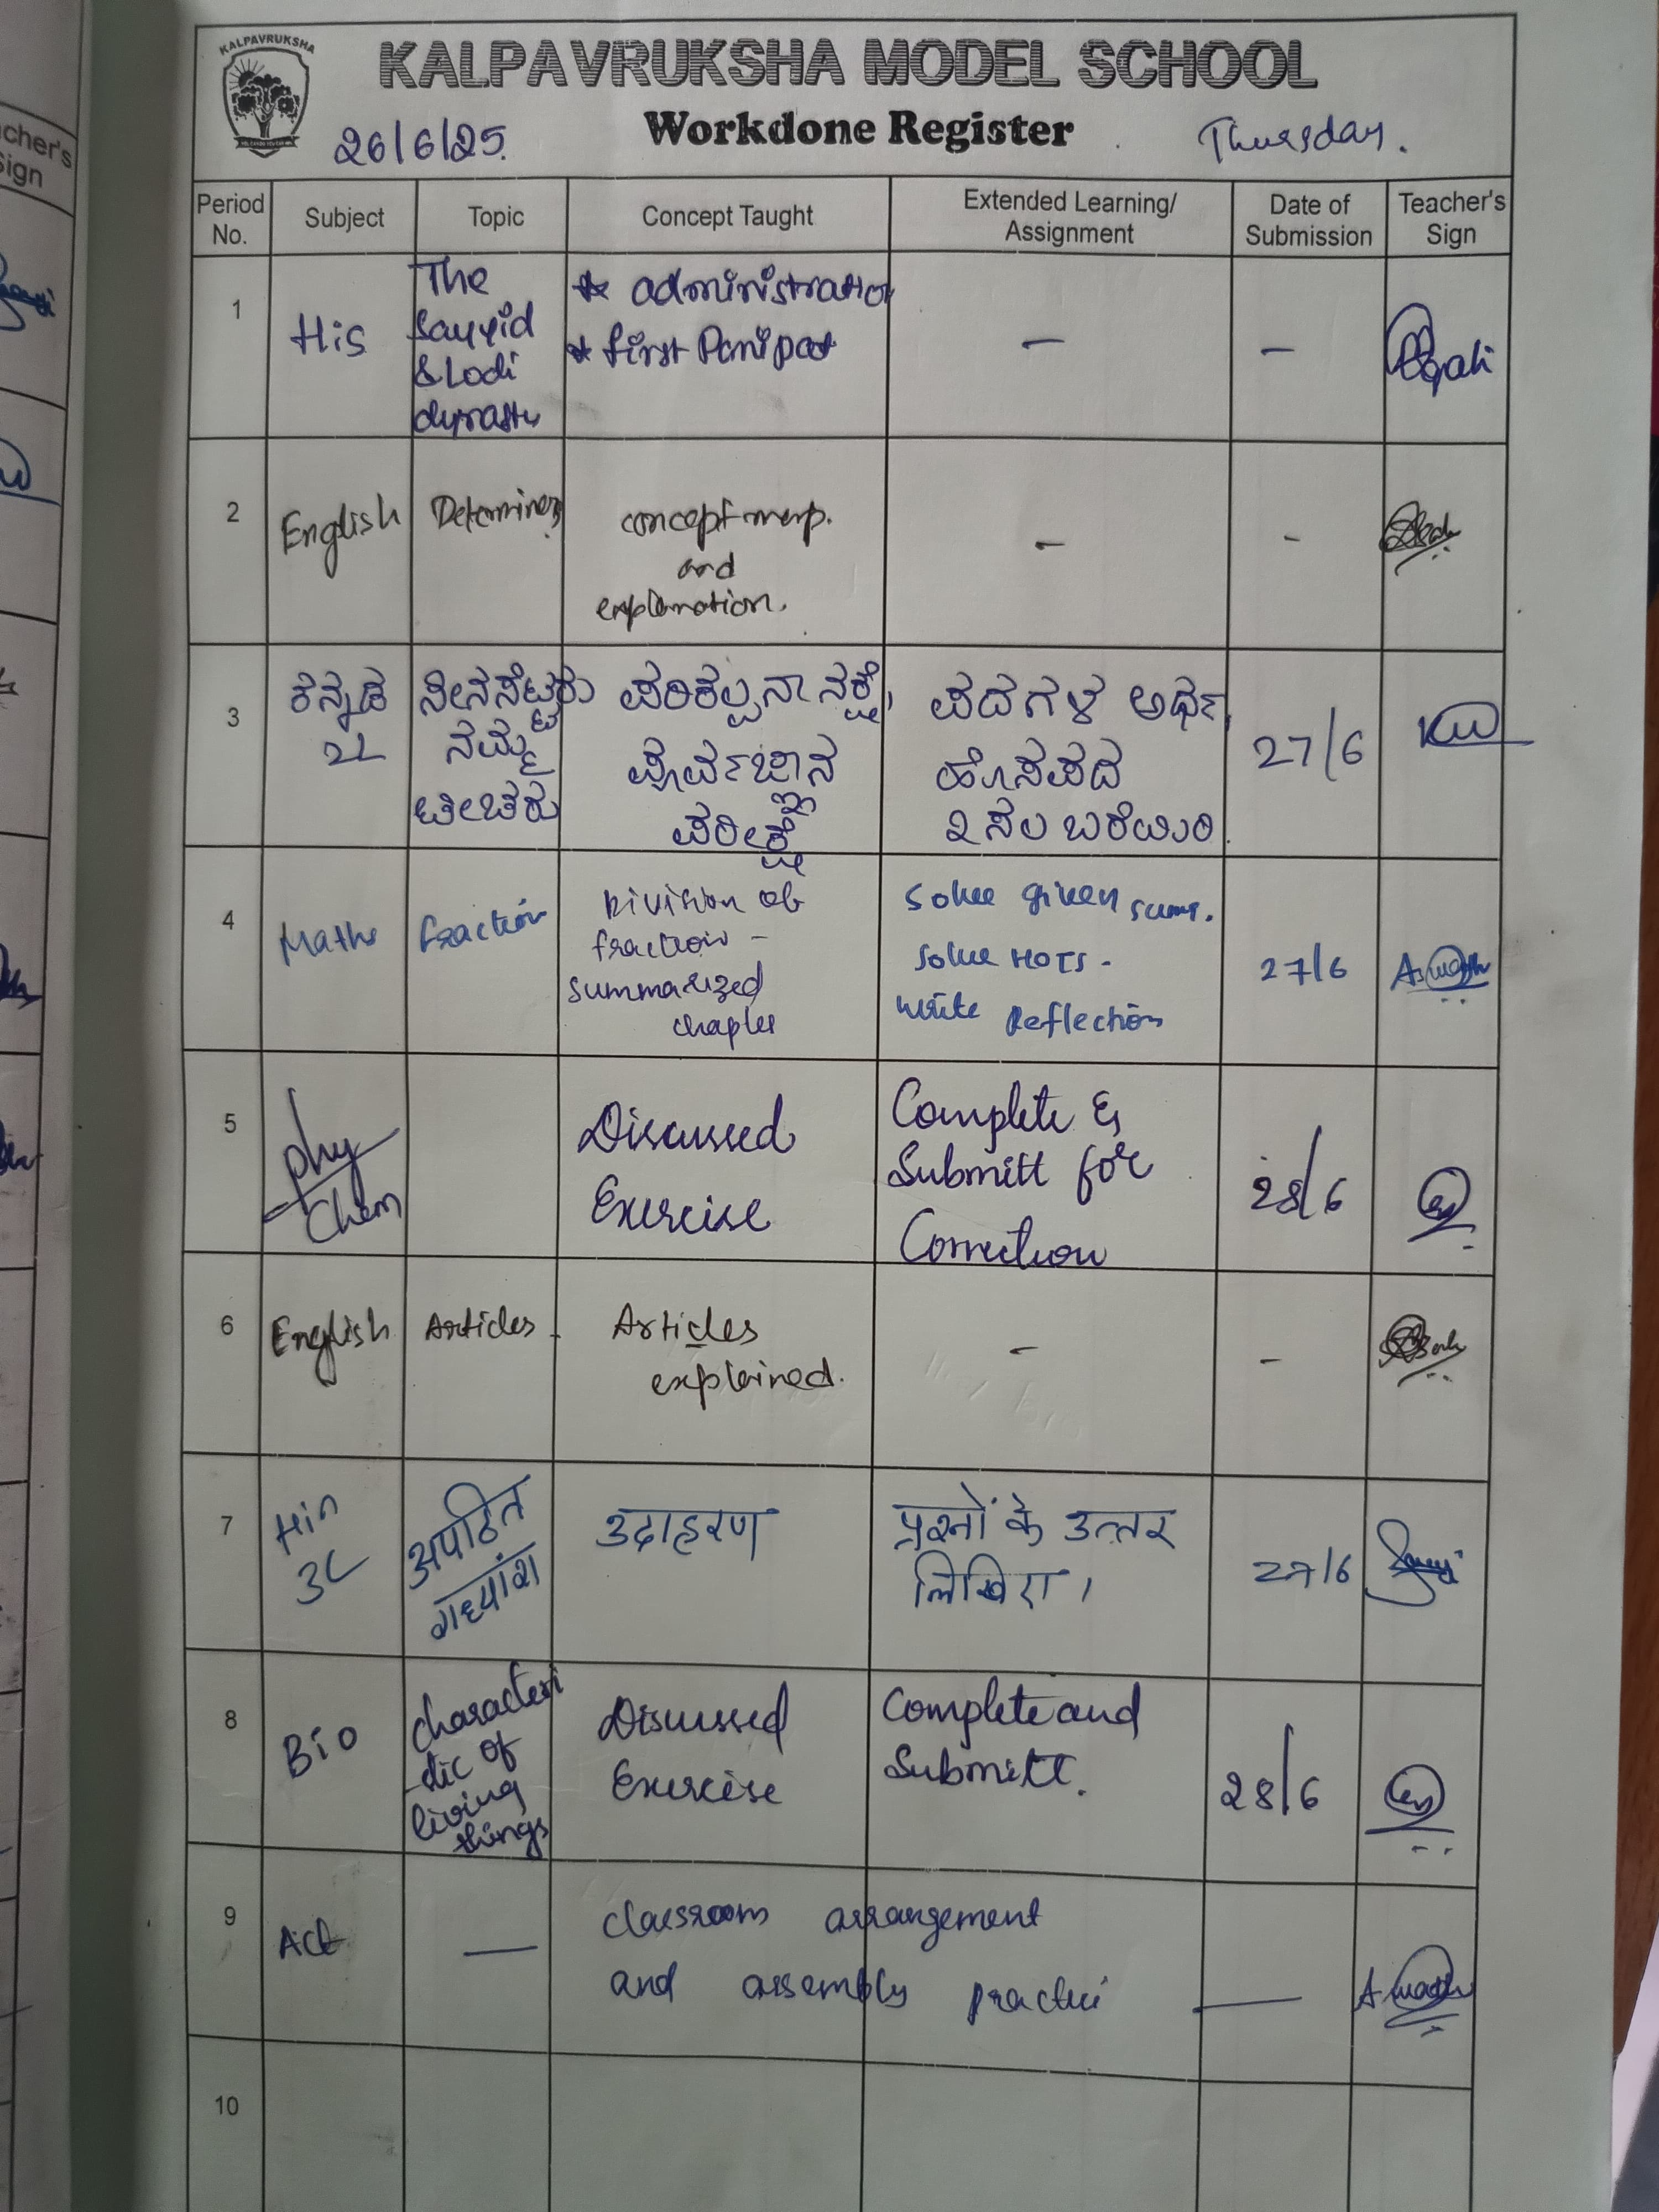 KALPAVRUKSHA
KALPAVRUKSHA MODEL SCHOOL
26/6/25. Workdone Register Thursday.
Period No. Subject Topic Concept Taught Extended Learning/ Assignment Date of Submission Teacher's Sign
1 His The Sayyid & Lodi dynasty
* administration
* first Panipat
— —
2 English Determiners concept map. and explanation. - -
3 ಕನ್ನಡ 2L
ನೀನನೆಟ್ಟರು ನಮ್ಮ ಟೀಚರು
ಪರಿಕಲ್ಪನಾ ನಕ್ಷೆ,
ಪೂರ್ವಜ್ಞಾನ
ಪರೀಕ್ಷೆ
ಪದಗಳ ಅರ್ಥ,
ಹೊಸಪದ
೨ ಸಲ ಬರೆಯಿರಿ.
27/6
4 Maths fraction
Division of
fraction -
summarized
chapter
Solve given sums.
Solve HOTS -
write Reflection
27/6
5 phy
Chem
Discussed
Exercise
Complete &
Submitt for
Correction
28/6
6 English Articles. Articles
explained.
- -
7 Hin
3L
अपठित
गद्यांश
उदाहरण
प्रश्नों के उत्तर
लिखिए।
27/6
8 Bio
characteri
-stic of
living
things
Discussed
Exercise
Complete and
Submitt.
28/6
9 Act — classroom arrangement
and assembly practice —
10
cher's
Sign